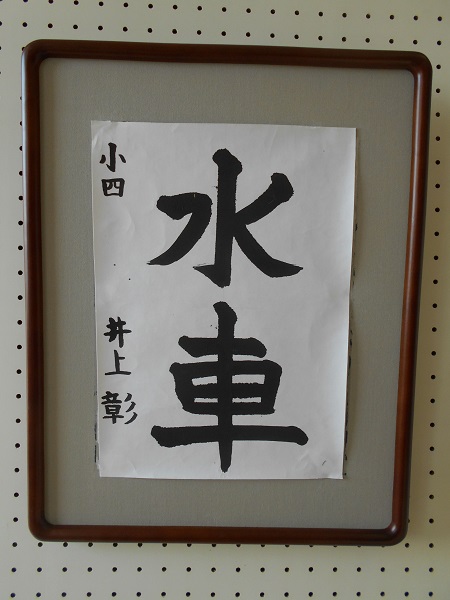 水車
小四 井上彰